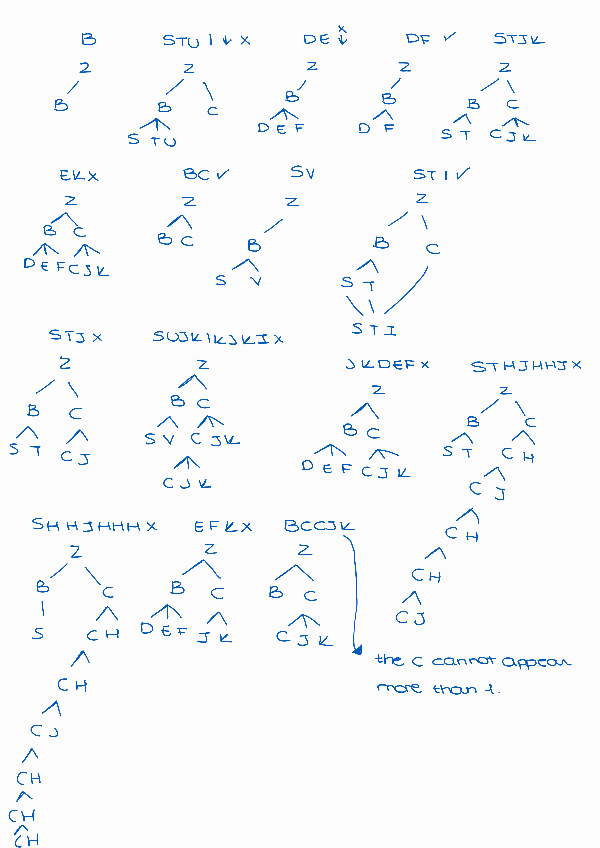 B STU I ↓ x DE x ↓ DF ✓ STJK
Z Z Z Z Z
B B C B B B C
S T U D E F D F S T C J K
EKX BC ✓ SV STI ✓
Z Z Z Z
B C B C B B C
D E F C J K S V S T
S T I
STJ x SUJKIKJKIX JKDEFX STHJHHJX
Z Z Z Z
B C B C B C B C
S T C J S V C J K D E F C J K S T C H
C J K C J
C H
C H
C J
SHHJHHHX EFKX BCCJK
Z Z Z
B C B C B C
S C H D E F J K C J K
C H
C J
C H
C H
C H
the C cannot appear
more than 1.